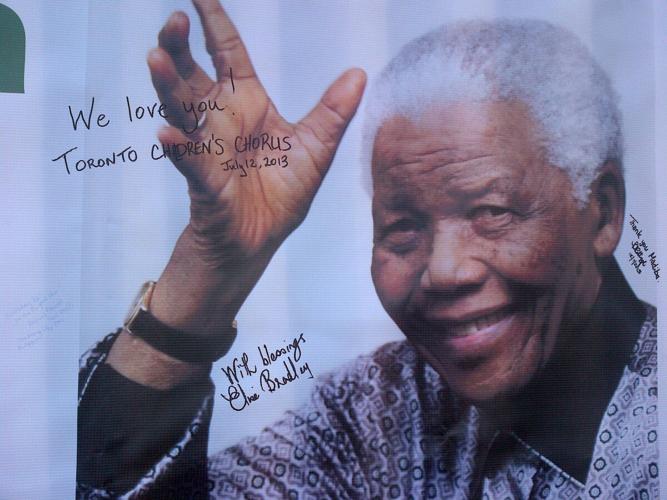 We love you!
TORONTO CHILDREN'S CHORUS
July 12, 2013
Thank you Madiba
With blessings
Bradley